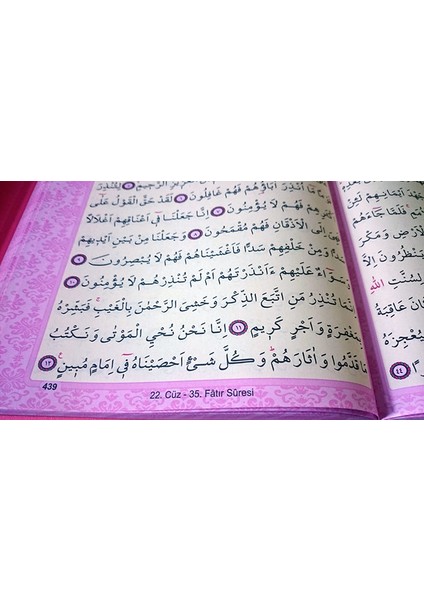 مَٓا اُنْذِرَ اٰبَٓاؤُ۬هُمْ فَهُمْ غَافِلُونَ ﴿٦﴾ لَقَدْ حَقَّ الْقَوْلُ عَلٰٓى
فَهُمْ لَا يُؤْمِنُونَ ﴿٧﴾ اِنَّا جَعَلْنَا ف۪ٓي اَعْنَاقِهِمْ اَغْلَالًا
اِلَى الْاَذْقَانِ فَهُمْ مُقْمَحُونَ ﴿٨﴾ وَجَعَلْنَا مِنْ بَيْنِ اَيْد۪يهِمْ
سَدًّا وَمِنْ خَلْفِهِمْ سَدًّا فَاَغْشَيْنَاهُمْ فَهُمْ لَا يُبْصِرُونَ ﴿٩﴾
وَسَوَٓاءٌ عَلَيْهِمْ ءَاَنْذَرْتَهُمْ اَمْ لَمْ تُنْذِرْهُمْ لَا يُؤْمِنُونَ ﴿١٠﴾
تُنْذِرُ مَنِ اتَّبَعَ الذِّكْرَ وَخَشِيَ الرَّحْمٰنَ بِالْغَيْبِۚ فَبَشِّرْهُ
بِمَغْفِرَةٍ وَاَجْرٍ كَر۪يمٍ ﴿١١﴾ اِنَّا نَحْنُ نُحْيِ الْمَوْتٰى وَنَكْتُبُ
مَا قَدَّمُوا وَاٰثَارَهُمْۜ وَكُلَّ شَيْءٍ اَحْصَيْنَاهُ ف۪ٓي اِمَامٍ مُب۪ينٍ۟ ﴿١٢﴾
439
22. Cüz - 35. Fâtır Sûresi
فَلَمَّا جَٓاءَهُمْ
وَمَكْرَ
يَنْظُرُونَ اِلَّا
لِسُنَّتِ اللّٰهِ
كَانَ عَاقِبَةُ
لِيُعْجِزَهُ
﴿٤٤﴾